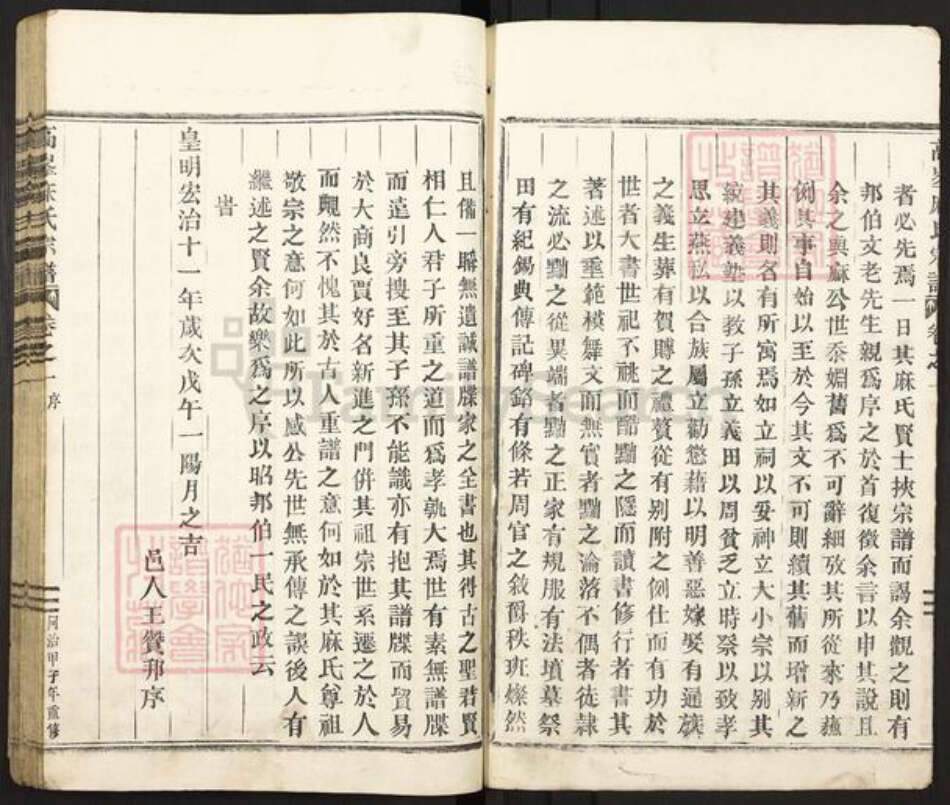 者必先焉一日其麻氏賢士挾宗譜而謁余觀之則有
邦伯文老先生親爲序之於首復徵余言以申其說且
余之與麻公世泰姻舊爲不可辭細攷其所從來乃
例其事自始以至於今其文不可則續其舊而增新之
其義則名有所寓焉如立祠以妥神立大小宗以别其
統建義塾以教子孫立義田以周貧乏立時祭以致孝
思立燕私以合族屬立勸懲藉以明善惡嫁娶有通族
之義生葬有賀賻之禮贅從有别附之例仕而有功於
世者大書世祀不祧而酷黜之隱而讀書修行者書其
著述以垂範模舞文而無實者黜之淪落不偶者徒隸
之流必黜之從異端者黜之正家有規服有法墳墓祭
田有紀錫典傳記碑銘有條若周官之敘爵秩班燦然
且備一聯無遺誠譜牒家之全書也其得古之聖君賢
相仁人君子所重之道而爲孝孰大焉世有素無譜牒
而遠引旁搜至其子孫不能識亦有抱其譜牒而貿易
於大商良賈好名新進之門併其祖宗世系遷之於人
而靦然不愧其於古人重譜之意何如於其麻氏尊祖
敬宗之意何如此所以感公先世無承傳之誤後人有
繼述之賢余故樂爲之序以昭邦伯一民之政云
旹
皇明宏治十一年歲次戊午一陽月之吉
邑人王贊邦序
氏宗譜 卷之一 序
同治甲子年重修